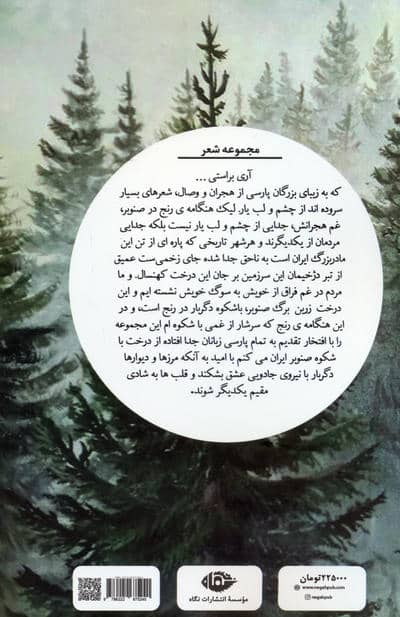 مجموعه شعر
آری براستی ...
که به زیبای بزرگان پارسی از هجران و وصال، شعرهای بسیار
سروده اند از چشم و لب یار لیک هنگامه ی رنج در صنوبر،
غم هجرانش، جدایی از چشم و لب یار نیست بلکه جدایی
مردمان از یکدیگرند و هرشهر تاریخی که پاره ای از تن این
مادربزرگ ایران است به ناحق جدا شده جای زخمی‌ست عمیق
از تبر دژخیمان این سرزمین بر جان این درخت کهنسال. و ما
مردم در غم فراق از خویش به سوگ خویش نشسته ایم و این
درخت زرین برگ صنوبر، باشکوه دگربار در رنج است، و در
این هنگامه ی رنج که سرشار از غمی با شکوه ام این مجموعه
را با افتخار تقدیم به تمام پارسی زبانان جدا افتاده از درخت با
شکوه صنوبر ایران می کنم با امید به آنکه مرزها و دیوارها
دگربار با نیروی جادویی عشق بشکند و قلب ها به شادی
مقیم یکدیگر شوند.
مؤسسهٔ انتشارات نگاه
۲۲۵۰۰۰تومان
www.negahpub.com
negahpub